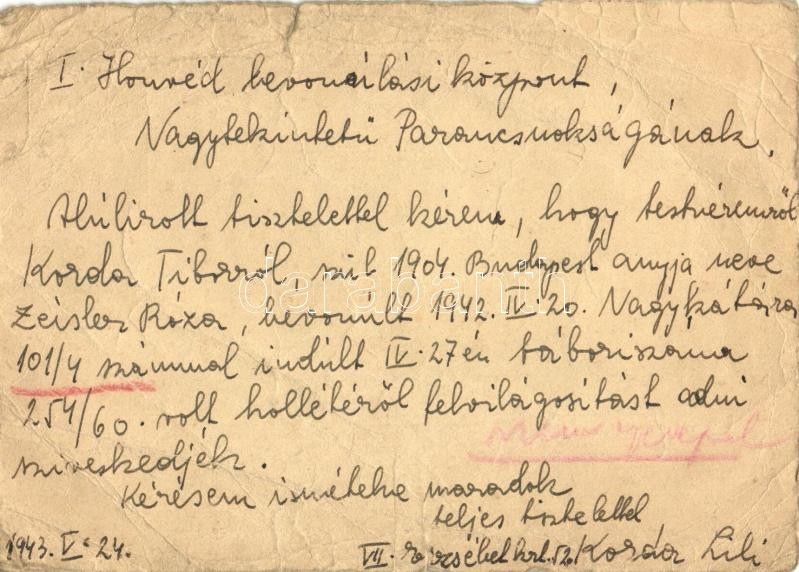 I. Honvéd bevonúlási központ,
Nagytekintetü Parancsnokságának.
Alúlirott tisztelettel kérem, hogy testvéremről
Korda Tiborról, szül 1904. Budapest anyja neve
Zeisler Róza, bevonúlt 1942. IV. 20. Nagykátára
101/4 számmal indúlt IV. 27én tábori száma
254/60. volt hollétéről felvilágosítást adni
sziveskedjék.
nem szerepel
Kérésem ismételve maradok
teljes tisztelettel
1943. V. 24.
VII. Erzsébet krt. 52. Korda Lili
darabanth